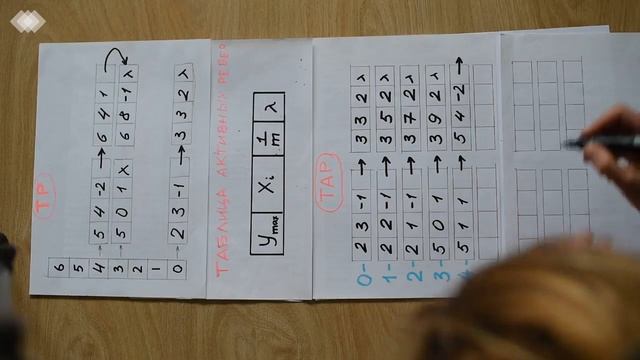 ТР
6
5
4 → 5 4 -2 → 6 4 1
3 → 5 0 1 λ 6 8 -1 λ
2
1
0 → 2 3 -1 → 3 3 2 λ
ТАБЛИЦА АКТИВНЫХ РЕБЕР
Ymax Xi 1/m λ
ТАР
0- 2 3 -1 → 3 3 2 λ
1- 2 2 -1 → 3 5 2 λ
2- 2 1 -1 → 3 7 2 λ
3- 5 0 1 → 3 9 2 λ
4- 5 1 1 → 5 4 -2 →